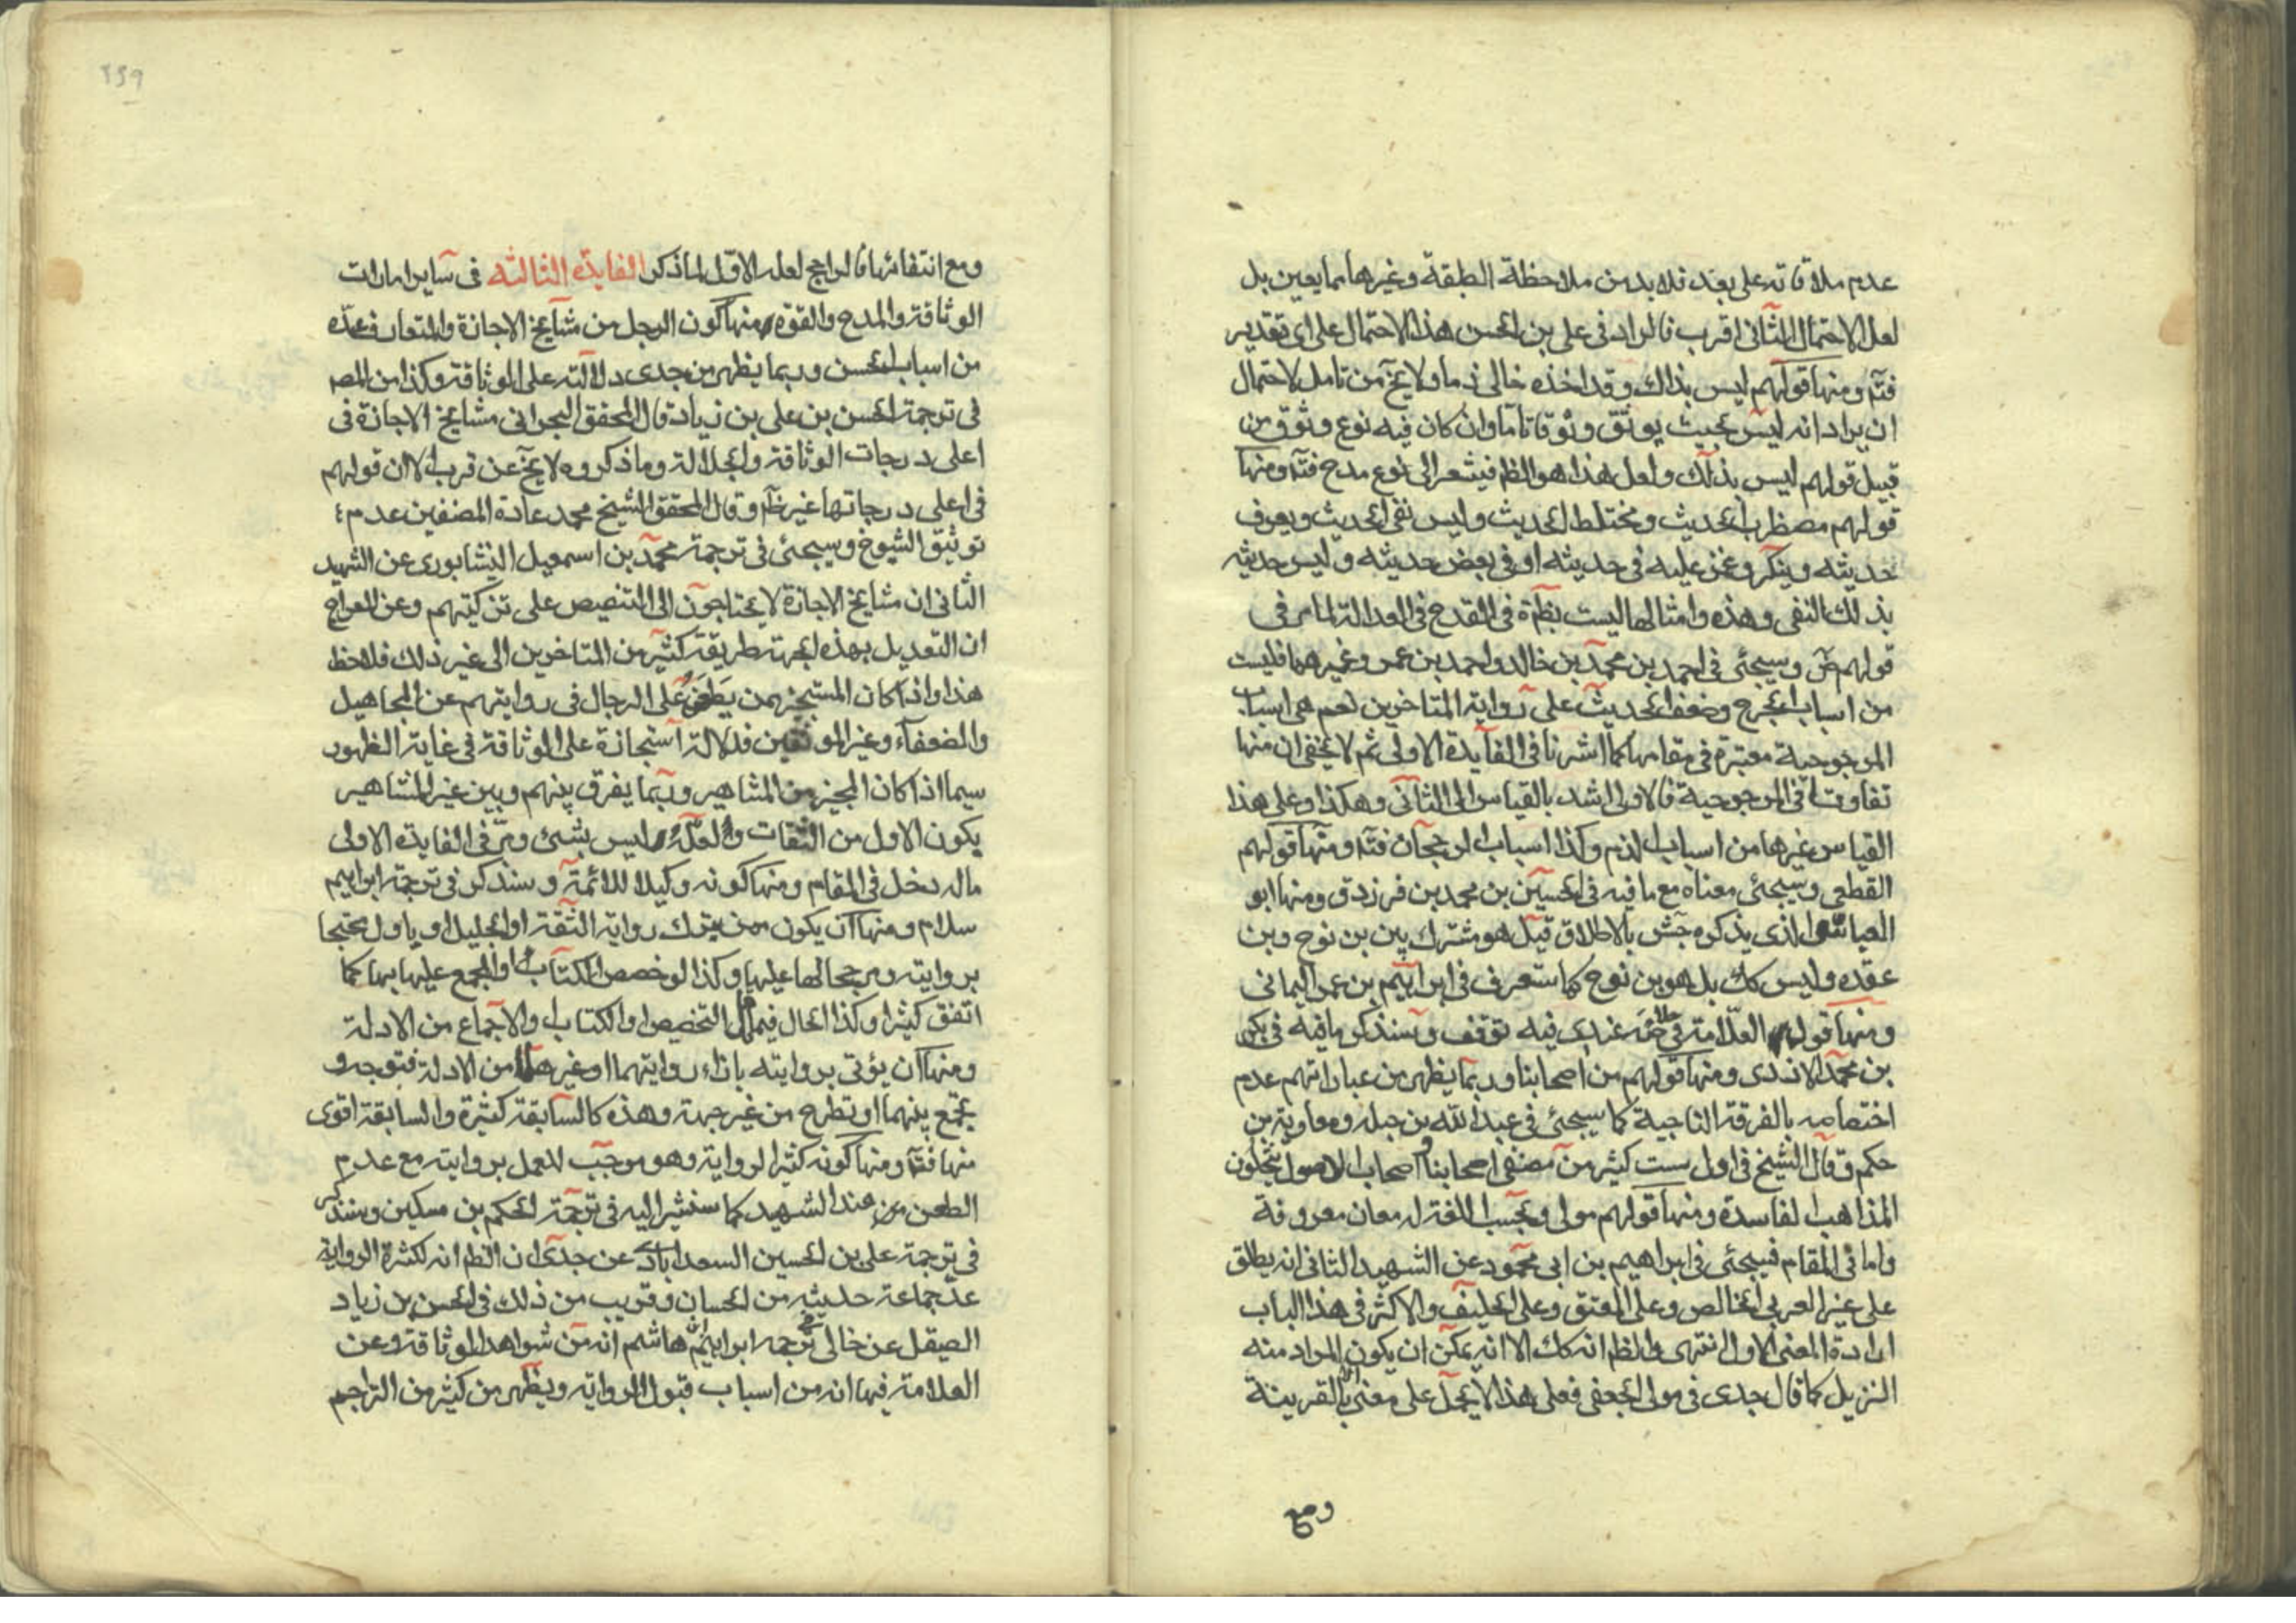 عدم ملاقاته على بعد فلا بد من ملاحظة الطبقة وغيرها مما يعين بل
لعل الاحتمال الثانى اقرب فالمراد فى على بن الحسن هذا الاحتمال على اى تقدير
فتم ومنها قولهم ليس بذاك وقد اخذه خالى ذما ولا يخ من تامل لاحتمال
ان يراد انه ليس بحيث يوثق وثوقا تاما وان كان فيه نوع وثوق من
قبيل قولهم ليس بذلك ولعل هذا هو الظم فيشعر الى نوع مدح فتم ومنها
قولهم مضطرب الحديث ومختلط الحديث وليس نقى الحديث ويعرف
حديثه وينكر وغمز عليه فى حديثه او فى بعض حديثه وليس حديثه
بذلك النقى وهذه وامثالها ليست بظاهرة فى القدح فى العدالة لما مر فى
قولهم ض وسيجئ فى احمد بن محمد بن خالد واحمد بن عمر وغيرهما فليست
من اسباب الجرح وضعف الحديث على رواية المتاخرين نعم هى اسباب
المرجوحية معتبرة فى مقامها كما اشرنا فى الفايدة الاولى ثم لا يخفى ان منها
تفاوتا فى المرجوحية فالاول اشد بالقياس الى الثانى وهكذا وعلى هذا
القياس غيرها من اسباب الذم وكذا اسباب الرجحان فتم ومنها قولهم
القطعى وسيجئ معناه مع ما فيه فى الحسين بن محمد بن فرزدق ومنها ابو
العباس الذى يذكره جش بالاطلاق قيل هو مشترك بين بن نوح وبن
عقده وليس كك بل هو بن نوح كما ستعرف فى ابراهيم بن عمر اليمانى
ومنها قول العلامة فى صه عندى فيه توقف وسنذكر ما فيه فى بكر
بن محمد الازدى ومنها قولهم من اصحابنا وربما يظهر من عباراتهم عدم
اختصاصه بالفرقة الناجية كما سيجئ فى عبد الله بن جبله ومعاوية بن
حكم وقال الشيخ فى اول ست كثير من مصنفى اصحابنا واصحاب الاصول ينتحلون
المذاهب الفاسدة ومنها قولهم مولى وبحسب اللغة له معان معروفة
واما فى المقام فيجئ فى ابراهيم بن ابى محمود عن الشهيد الثانى انه يطلق
على غير العربى الخالص وعلى المعتق وعلى الحليف والاكثر فى هذا الباب
ارادة المعنى الاول انتهى والظم انه كك الا انه يمكن ان يكون المراد منه
النزيل كما قال جدى فى مولى الجعفى فعلى هذا لا يحمل على معنى الا بالقرينة
ومع
٢٤٩
ومع انتفائها فالراجح لعله الاول لما ذكر الفايدة الثالثه فى ساير امارات
الوثاقة والمدح والقوه منها كون الرجل من مشايخ الاجازة والمتعارف عده
من اسباب الحسن وربما يظهر من جدى دلالته على الوثاقة وكذا من المص
فى ترجمة الحسن بن على بن زياد قال المحقق البحرانى مشايخ الاجازة فى
اعلى درجات الوثاقة والجلالة وما ذكروه لا يخ عن قرب الا ان قولهم
فى اعلى درجاتها غير ظم وقال المحقق الشيخ محمد عادة المصنفين عدم
توثيق الشيوخ وسيجئ فى ترجمة محمد بن اسمعيل النيشابورى عن الشهيد
الثانى ان مشايخ الاجازة لا يحتاجون الى التنصيص على تزكيتهم وعن المعراج
ان التعديل بهذه الجهة طريقة كثير من المتاخرين الى غير ذلك فلاحظ
هذا واذا كان المستجيز ممن يطعن على الرجال فى روايتهم عن المجاهيل
والضعفاء وغير الموثقين فدلالة استجازة على الوثاقة فى غاية الظهور
سيما اذا كان المجيز من المشاهير وربما يفرق بينهم وبين غير المشاهير
يكون الاول من الثقات ولعله ليس بشئ ومر فى الفايدة الاولى
ماله دخل فى المقام ومنها كونه وكيلا للائمة وسنذكر فى ترجمة ابراهيم
سلام ومنها ان يكون ممن يترك رواية الثقة او الجليل او ياول محتجا
بروايته ومرجحا لها عليها وكذا لو خصص الكتاب او المجمع عليه بها كما
اتفق كثيرا وكذا الحال فيما التخصيص والكتاب والاجماع من الادلة
ومنها ان يؤتى بروايته بازاء روايتهما او غيرها من الادلة فتوجه و
يجمع بينهما او تطرح من غير جهة وهذه كالسابقة كثيرة والسابقة اقوى
منها فتم ومنها كونه كثير الرواية وهو موجب للعمل بروايته مع عدم
الطعن من عند الشهيد كما سنشير اليه فى ترجمة الحكم بن مسكين وسنذكر
فى ترجمة على بن الحسين السعدابادى عن جدى ان الظم انه لكثرة الرواية
عد جماعة حديثه من الحسان وقريب من ذلك فى الحسن بن زياد
الصيقل عن خالى ترجمه ابراهيم هاشم انه من شواهد الوثاقة وعن
العلامة فيها انه من اسباب قبول الرواية ويظهر من كثير من التراجم